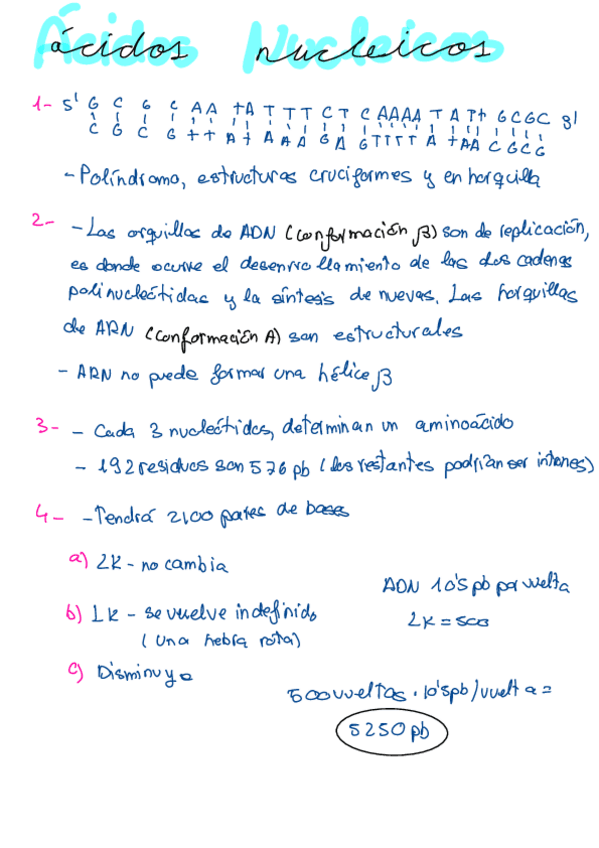 ácidos Nucleicos
1- 5' G C G C AA tA T TTCT C AAAA T A Tt GCGC 3'
C G C G tt At A AA GA GTTTT A tAA C GCG
- Políndromo, estructuras cruciformes y en horquilla
2- - Las orquillas de ADN (conformación β) son de replicación,
es donde ocurre el desenrrollamiento de las dos cadenas
polinucleótidas y la síntesis de nuevas. Las horquillas
de ARN (conformación A) son estructurales
- ARN no puede formar una hélice β
3- - Cada 3 nucleótidos, determinan un aminoácido
- 192 residuos son 576 pb (los restantes podrían ser intrones)
4- - Tendrá 2100 pares de bases
a) LK - no cambia
ADN 10'5 pb por vuelta
b) LK - se vuelve indefinido
LK = 500
(una hebra rota)
c) Disminuye
500 vueltas · 10'5pb/vuelta =
5250 pb